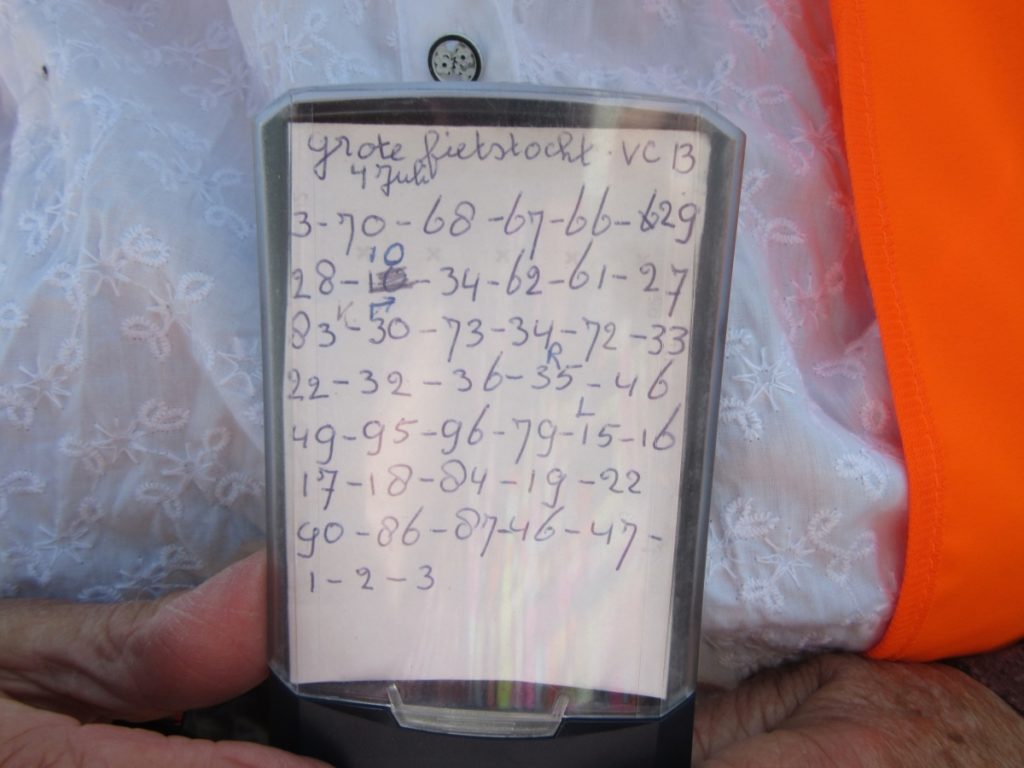 grote fietstocht. VC 13
4 Juli
3-70-68-67-66-629
10
28-10-34-62-61-27
83-30-73-34-72-33
R
22-32-36-35-46
L
49-95-96-79-15-16
17-18-84-19-22
90-86-87-46-47-
1-2-3